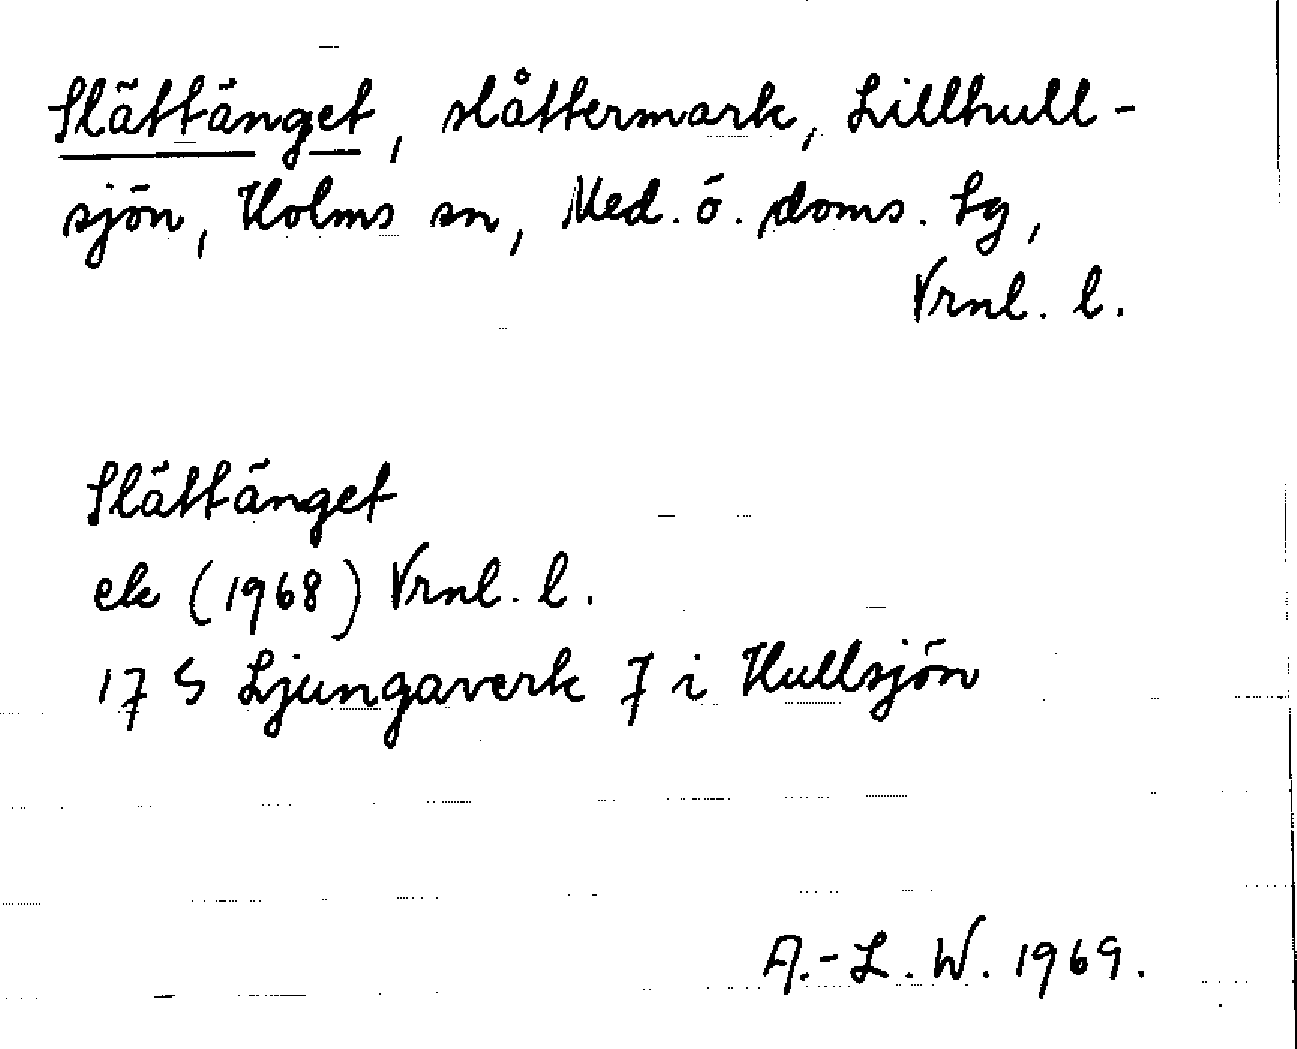 Slättänget, slåttermark, Lillhull-
sjön, Holms sn, Med. ö. doms. tg,
Vrnl. l.
Slättänget
ek (1968) Vrnl. l.
17 S Ljungaverk 7 i Hullsjön
A.-L. W. 1969.